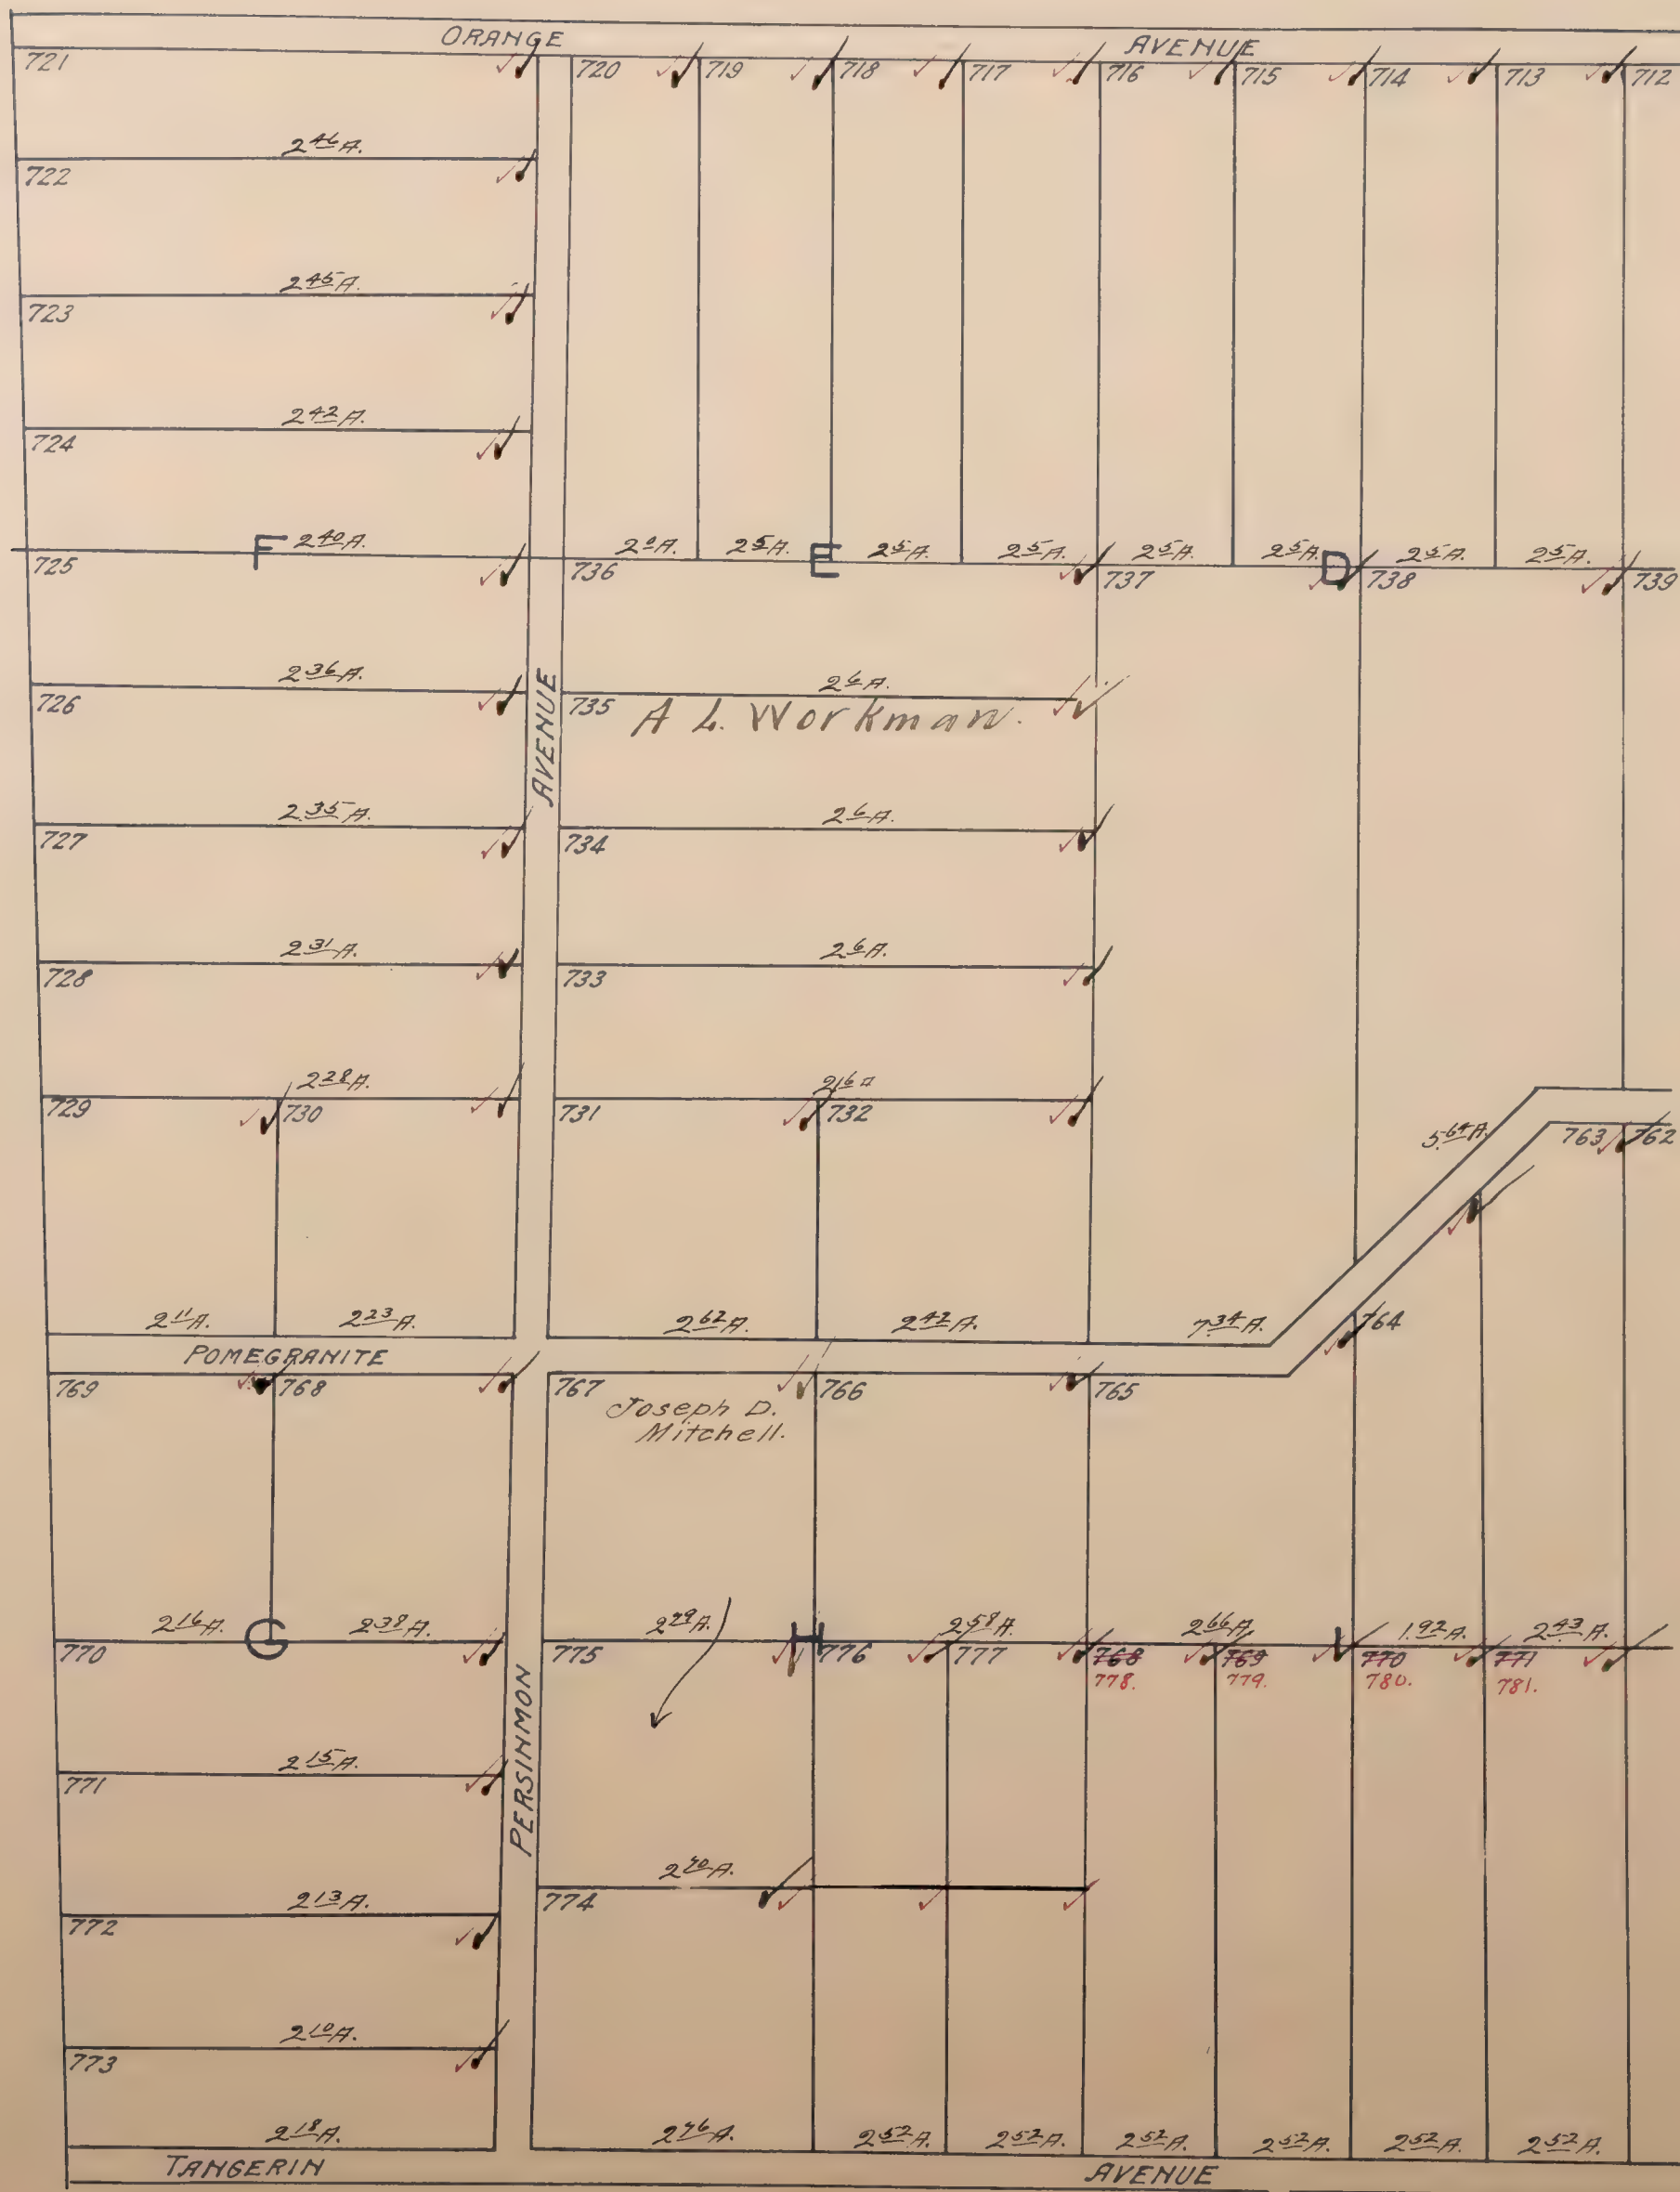 ORANGE AVENUE
721 720 719 718 717 716 715 714 713 712
2 46 A.
722
2 45 A.
723
2 42 A.
724
F 2 40 A. 2 0 A. 2 5 A. E 2 5 A. 2 5 A. 2 5 A. 2 5 A. D 2 5 A. 2 5 A.
725 736 737 738 739
2 36 A. 2 6 A.
726 AVENUE 735 A L. Workman.
2 35 A. 2 6 A.
727 734
2 31 A. 2 6 A.
728 733
2 28 A. 2 6 A
729 730 731 732
5 64 A. 763 762
2 11 A. 2 23 A. 2 62 A. 2 42 A. 7 34 A. 764
POMEGRANITE
769 768 767 766 765
Joseph D.
Mitchell.
2 16 A. G 2 38 A. H 2 58 A. 2 66 A. 1.92 A. 2 43 A.
770 775 776 777 768 769 770 771
778. 779. 780. 781.
PERSINMON
2 15 A.
771
2 13 A.
772 774
2 10 A.
773
2 18 A. 2 52 A. 2 52 A. 2 52 A. 2 52 A. 2 52 A. 2 52 A.
TANGERIN AVENUE